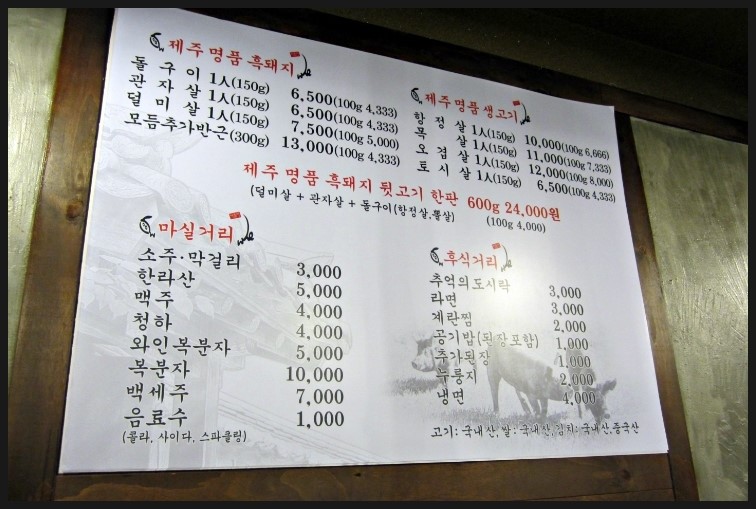 제주 명품 흑돼지
돌 구 이 1人(150g) 6,500(100g 4,333)
관 자 살 1人(150g) 6,500(100g 4,333)
덜 미 살 1人(150g) 7,500(100g 5,000)
모듬추가반근(300g) 13,000(100g 4,333)
제주명품생고기
항 정 살 1人(150g) 10,000(100g 6,666)
목 살 1人(150g) 11,000(100g 7,333)
오 겹 살 1人(150g) 12,000(100g 8,000)
토 시 살 1人(150g) 6,500(100g 4,333)
제주 명품 흑돼지 뒷고기 한판 600g 24,000원
(덜미살 + 관자살 + 돌구이(항정살,뽈살) (100g 4,000)
마실거리
소주·막걸리 3,000
한라산 5,000
맥주 4,000
청하 4,000
와인복분자 5,000
복분자 10,000
백세주 7,000
음료수 1,000
(콜라, 사이다, 스파클링)
후식거리
추억의도시락 3,000
라면 3,000
계란찜 2,000
공기밥(된장포함) 1,000
추가된장 1,000
누룽지 2,000
냉면 4,000
고기: 국내산,쌀: 국내산,김치: 국내산,중국산